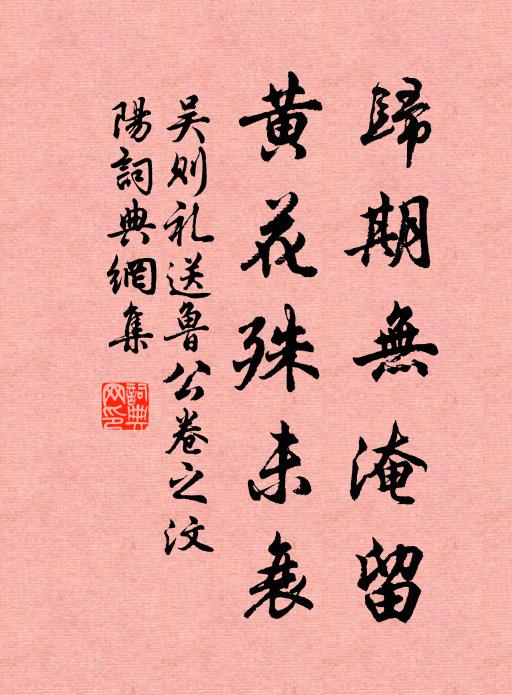 歸期無淹留
黃花殊未衰
吴则礼送魯公卷之汶
陽詞典網集
詞典網印